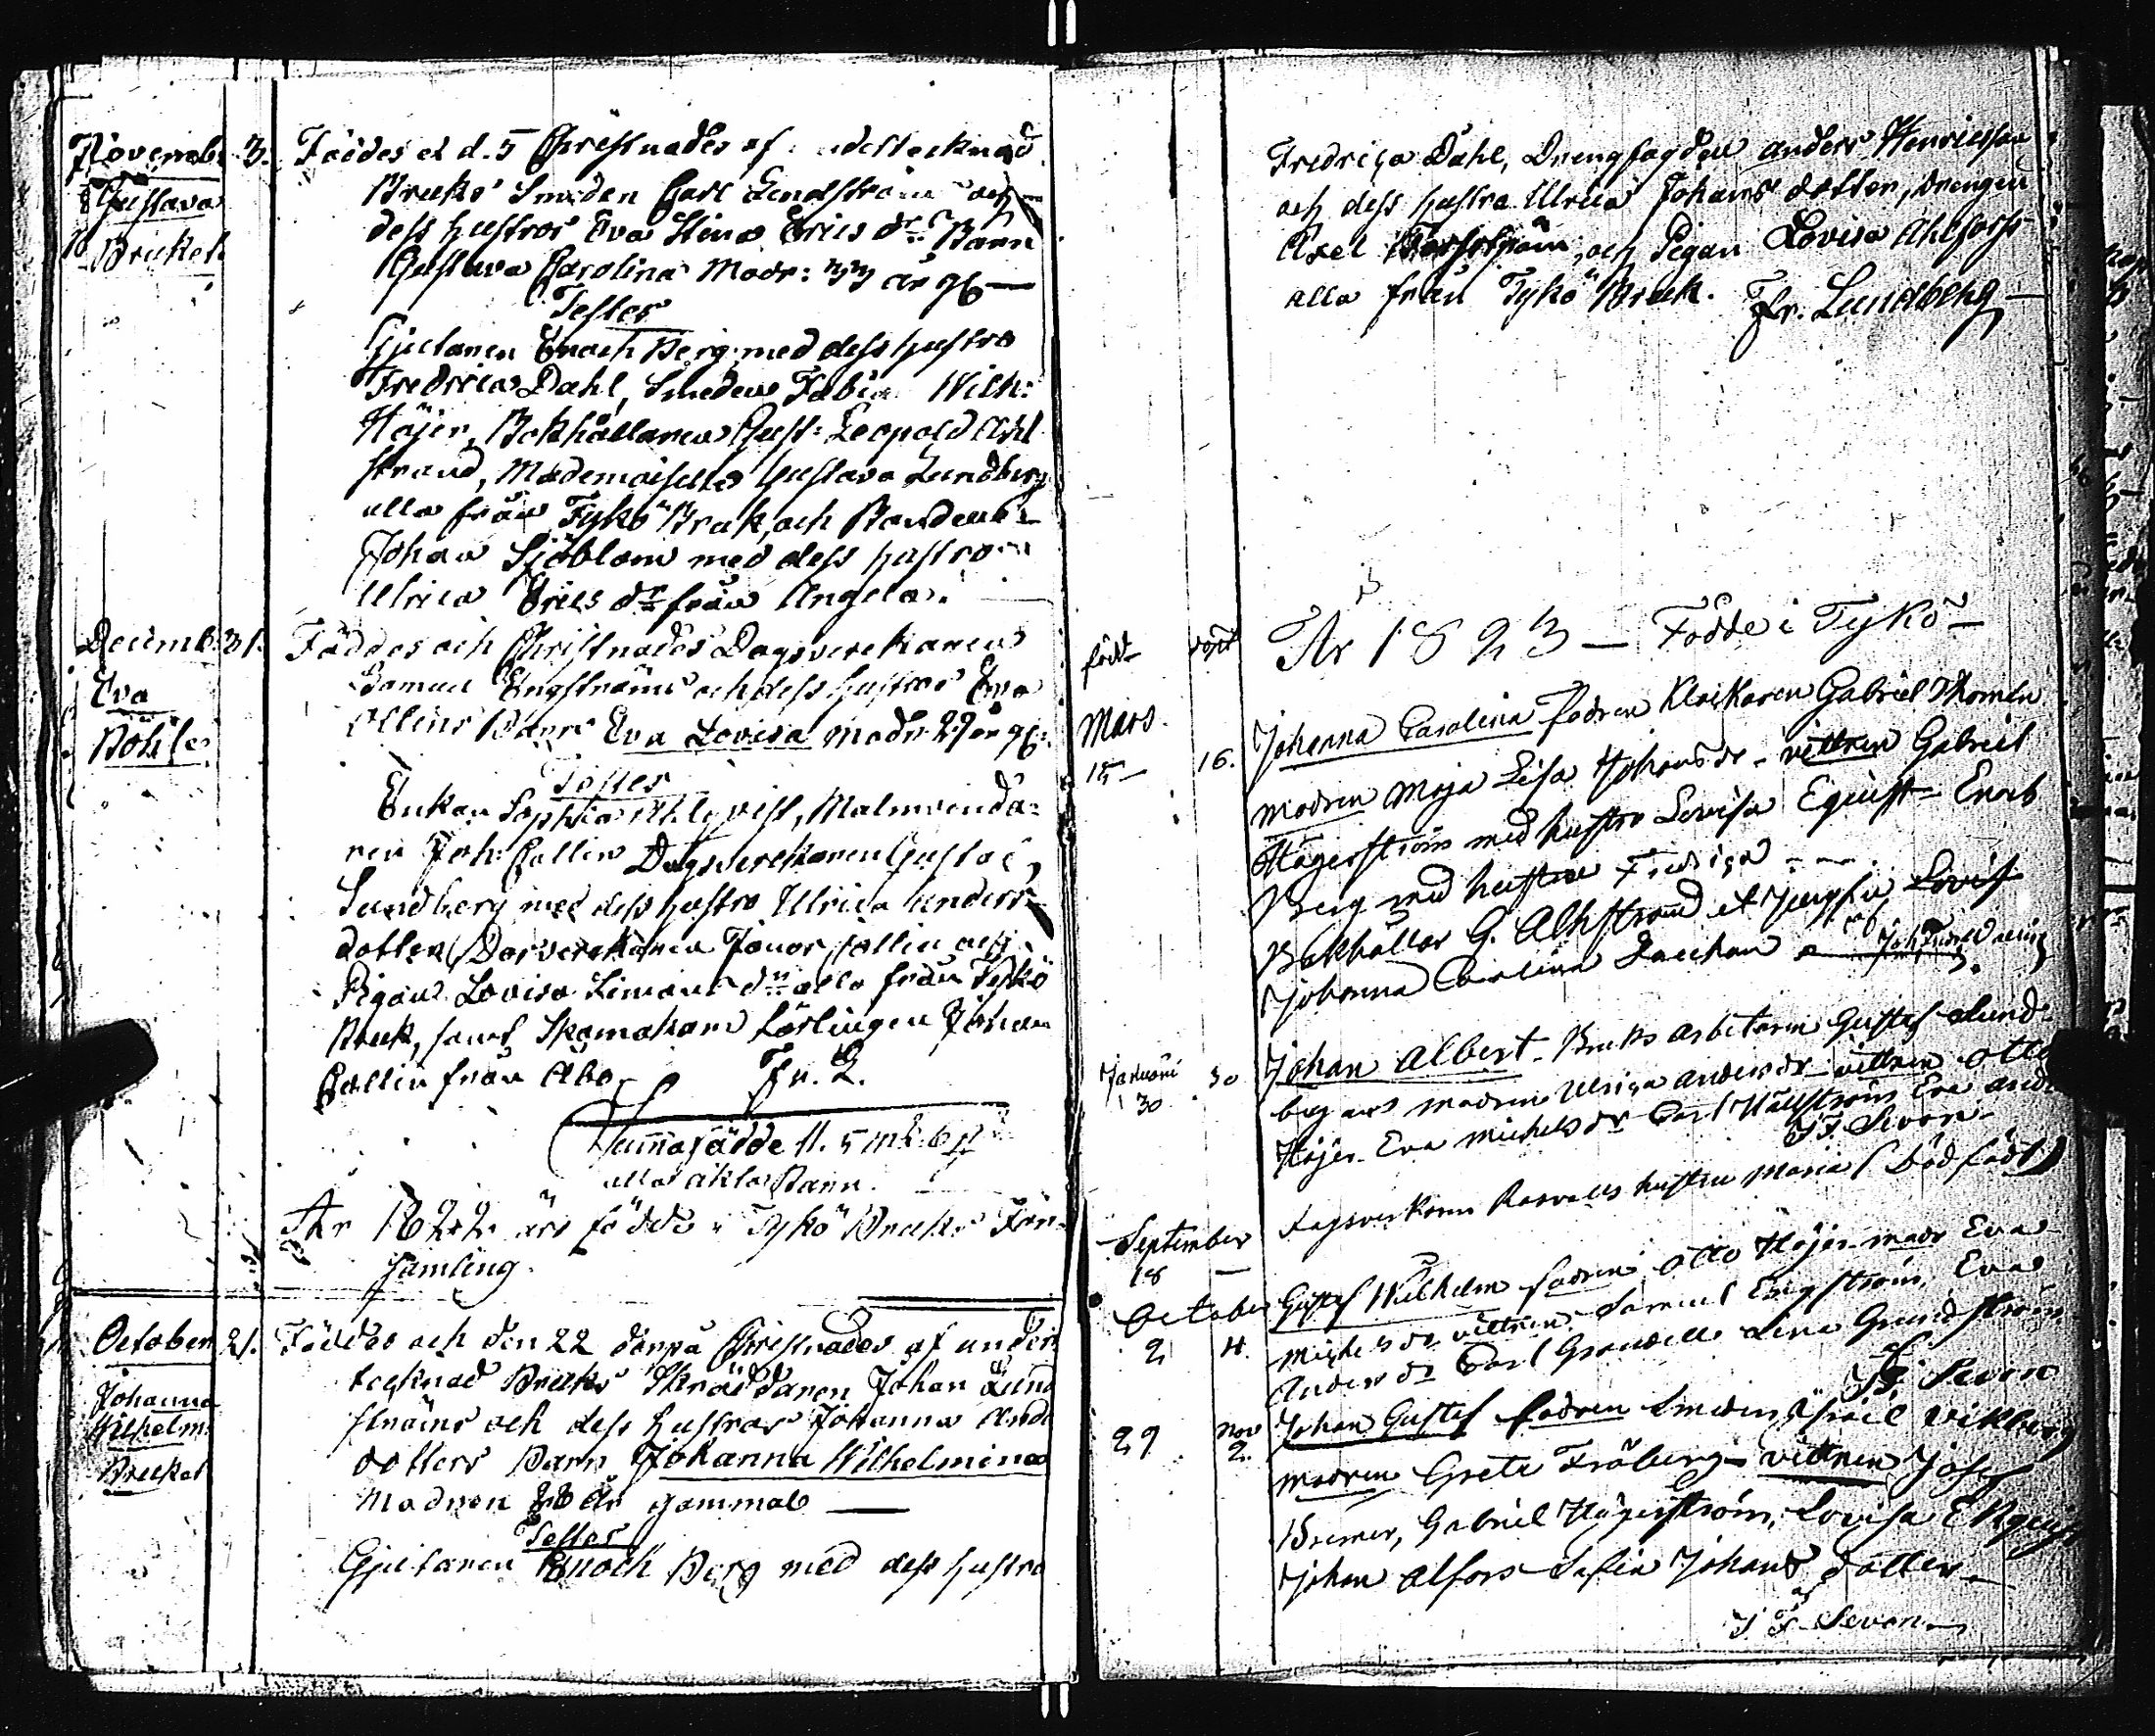 November 3. Föddes et d. 5 Christnades af undertecknad
Gustava Bruks Smeden Carl Lindström och
Bruket dess hustros Eva Stina Erics dr Barn
Gustava Carolina Modr: 33 år gl
Testes
Gjutaren Enoch Berg med dess hustro
Fredrica Dahl, Smeden Fabian Wilh:
Höjer, Bokhållaren Gust: Leopold Ahl
strand, Mademoiselle Gustava Lundberg
alla från Tykö Bruk, och Bonden
Johan Sjöblom med dess hustro
Ulrica Erics dr från Angela.
Decemb: 31. Föddes och Christnades Dagsverckaren
Eva Samuel Engströms och dess hustros Eva
Böhle Collins Barn Eva Lovisa modr 29 år gl:
Testes
Enkan Sophia Ahlqvist, Malmvenda
ren Joh: Collin Dagsverckaren Gustaf
Lundberg med dess hustro Ulrica Anders
dotter Dagsverckaren Jonas Collin och
Pigan Lovisa Simons dr alla från Tykö
Bruk, samt Skomakare Lärlingen Johan
Collin från Åbo Fr. L.
Summa födde 11. 5 mk. 6 qk
alla äkta Barn.
År 1822 äro födde i Tykö Bruks För
samling.
October 21. Föddes och den 22 derpå Christnades af under
Johanna tecknad Bruks Skräddaren Johan Lund
Wilhelm: ströms och dess hustros Johanna Anders
Bruket dotters Barn Johanna Wilhelmina
Modren 28 år gammal
Testes
Gjutaren Enoch Berg med dess hustro
Fredrica Dahl, Drengfogden Anders Henricsson
och dess hustro Ulrica Johans dotter, drengen
Axel Forsström, och Pigan Lovisa Ahlfors
alla från Tykö Bruk. Fr. Lundberg
År 1823 — Födde i Tykö
födt döpt
Mars.
15 16. Johanna Carolina fadren Klockaren Gabriel Thomle
modren Maja Lisa Johans dr - vittnen Gabriel
Hägerström med hustro Lovisa Equist - Enok
Berg med hustru Fredrica
Bokhållar G. Alhstrand et Jungfru Lovis
Johanna Carolina
Januari
30 30 Johan Albert - Bruks arbetaren Gustaf Lund
bergs modren Ulrica Anders dr - vittnen Otto
Höjer Eva Michels dr Carl Hällström Eva And
J F. Sevon
September
18 — Dagsverkaren hustru Maria (Död född)
October
2 4. Gustaf Wilhelm fadren Otto Höjer modr Eva
Michels dr vittnen Samuel Engström, Eva
Anders dr Carl Granvell Lena Grundström
J F. Sevon
29 Nov 2. Johan Gustaf fadren Smeden Israel Vikberg
modren Greta Fröberg - vittnen Josef
Bremer, Gabriel Hägerström, Lovisa ENquist
Johan Alfors Sofia Johans dotter
J F Sevon